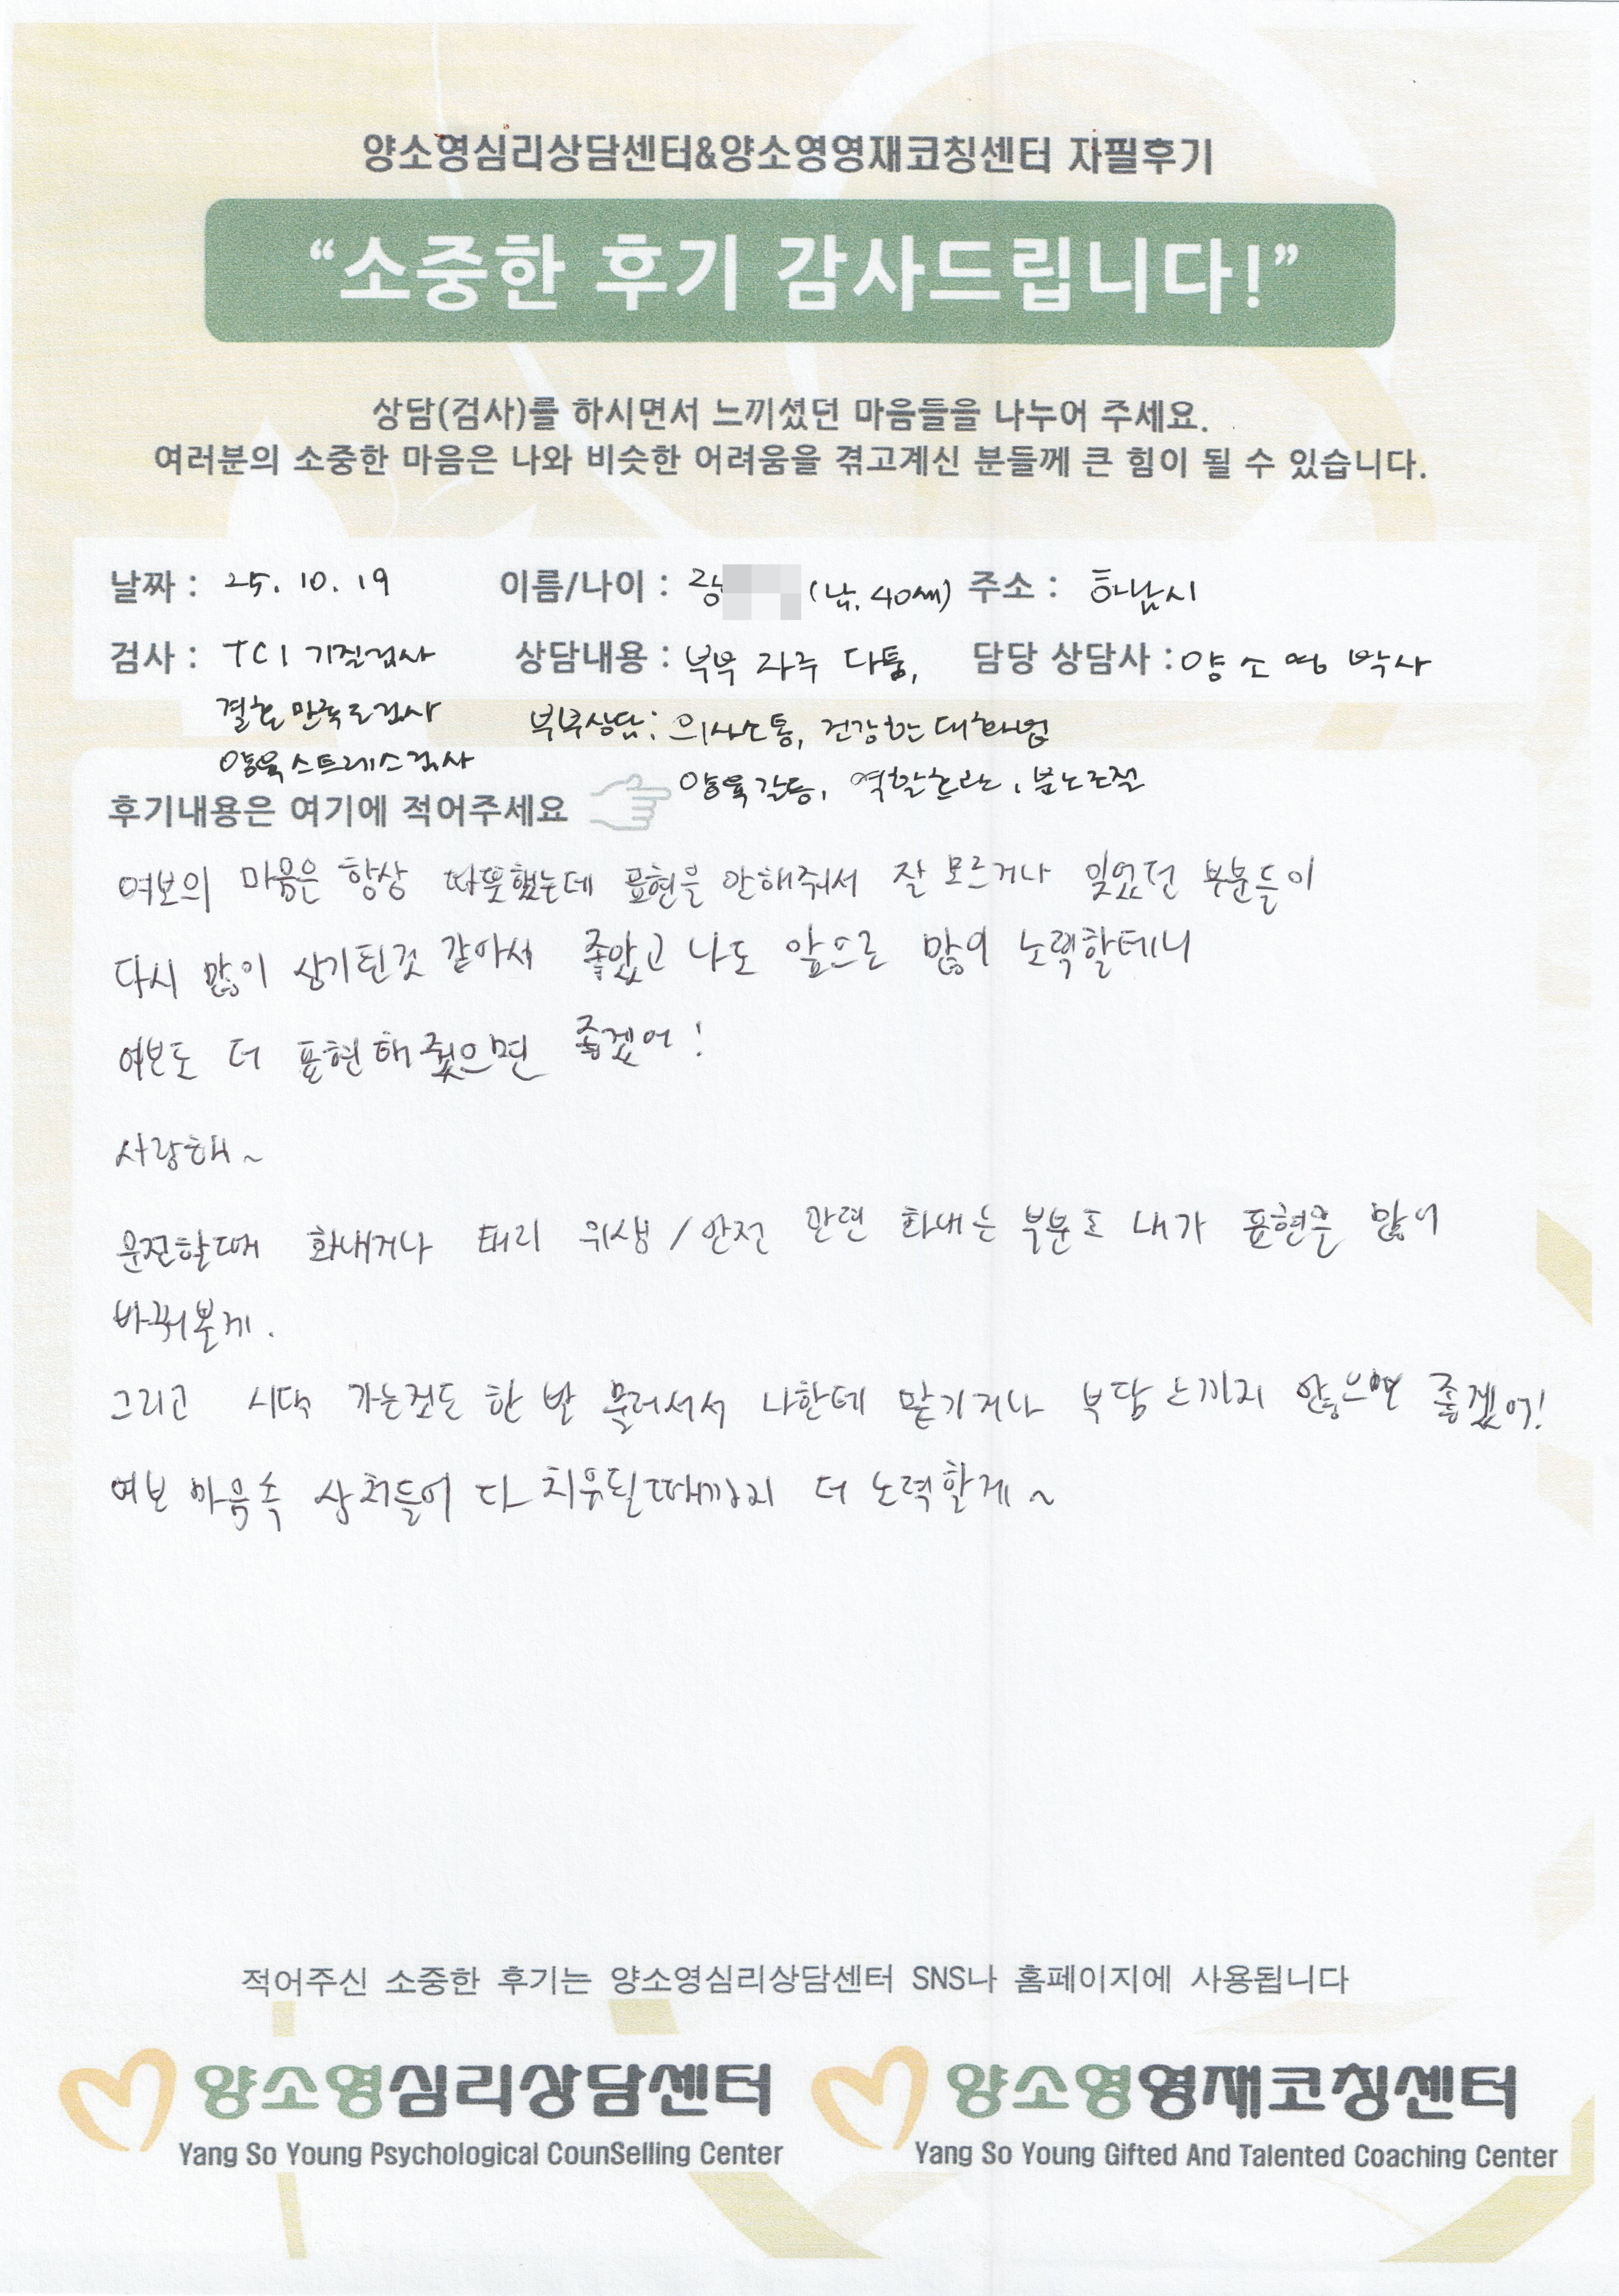 양소영심리상담센터&양소영영재코칭센터 자필후기
“소중한 후기 감사드립니다!”
상담(검사)를 하시면서 느끼셨던 마음들을 나누어 주세요.
여러분의 소중한 마음은 나와 비슷한 어려움을 겪고계신 분들께 큰 힘이 될 수 있습니다.
날짜 : 25. 10. 19 이름/나이 : (남, 40세) 주소 : 하남시
검사 : TCI 기질검사 상담내용 : 부부 자주 다툼, 담당 상담사 : 양소영 박사
결혼만족도검사 부부상담: 의사소통, 건강한 대화법
양육스트레스검사 양육갈등, 역할혼란, 분노조절
후기내용은 여기에 적어주세요
여보의 마음은 항상 따뜻했는데 표현을 안해줘서 잘 모르거나 잊었던 부분들이
다시 많이 상기된것 같아서 좋았고 나도 앞으로 많이 노력할테니
여보도 더 표현해줬으면 좋겠어!
사랑해~
운전할때 화내거나 태리 위생/안전 관련 화내는 부분도 내가 표현을 많이
바꿔볼게.
그리고 시댁 가는것도 한 발 물러서서 나한테 맡기거나 부담 느끼지 않으면 좋겠어!
여보 마음속 상처들이 다 치유될때까지 더 노력할게~
적어주신 소중한 후기는 양소영심리상담센터 SNS나 홈페이지에 사용됩니다
양소영심리상담센터 양소영영재코칭센터
Yang So Young Psychological CounSelling Center Yang So Young Gifted And Talented Coaching Center